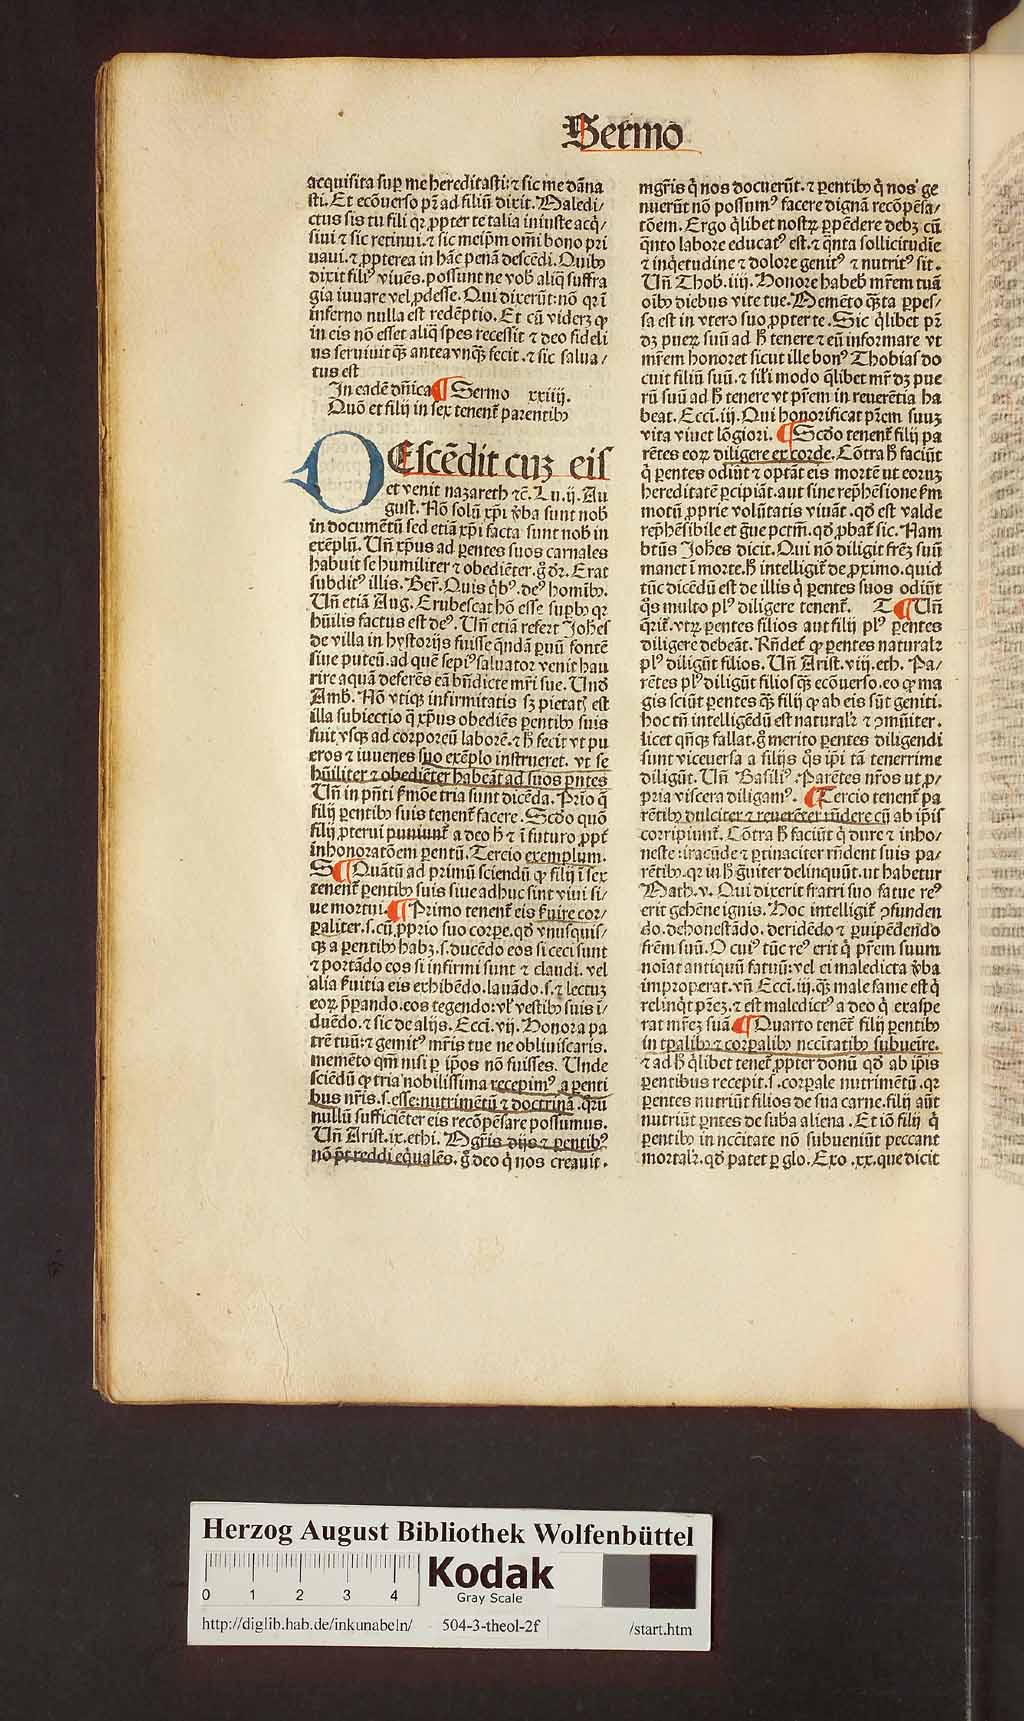 Sermo
acquisita sup̱ me hereditasti: ⁊ sic me dāna
sti. Et ecōuerso pr̄ ad filiū dixit. Maledi/
ctus sis tu fili qꝛ ꝓpter te talia iniuste acq̇/
siui ⁊ sic retinui. ⁊ sic meip̄m om̄i bono pri
uaui. ⁊ ꝓpterea in hāc penā descēdi. Quibꝰ
dixit filiꝰ viuēs. possunt ne vob̄ aliq̄ suffra
gia iuuare vel ꝓdesse. Qui dixerūt: nō qꝛ ī
inferno nulla est redēptio. Et cū viderꝫ ꝙ
in eis nō esset aliq̄ spes recessit ⁊ deo fideli
us seruiuit q̄ꝫ antea vnq̄ꝫ fecit. ⁊ sic salua/
tus est
In eadē dn̄ica ¶ Sermo xxiiij.
Quō et filij in sex tenent̄ parentibꝰ
DEscēdit cuꝫ eis
et venit nazareth ⁊c̄. Lu. ij. Au
gust. Nō solū xp̄i v̄ba sunt nob̄
in documētū sed etiā xp̄i facta sunt nob̄ in
exēplū. Vn̄ xp̄us ad ꝑentes suos carnales
habuit se humiliter ⁊ obediēter. g̊ dꝛ. Erat
subditꝰ illis. Ber̄. Quis q̇bꝰ. deꝰ homībꝰ.
Vn̄ etiā Aug. Erubescat hō esse suꝑbꝰ qꝛ
hūilis factus est deꝰ. Vn̄ etiā refert Joh̄es
de villa in hystorijs fuisse q̄ndā ꝑuū fontē
siue puteū. ad quē sepiꝰ saluator venit hau
rire aquā deferēs eā bn̄dicte mr̄i sue. Und̄
Amb. Nō vtiqꝫ infirmitatis sꝫ pietatꝭ est
illa subiectio q̄ xp̄us obediēs ꝑentibꝰ suis
fuit vsqꝫ ad corporeū laborē. ⁊ h̄ fecit vt pu
eros ⁊ iuuenes suo exēplo instrueret. vt se
hūiliter ⁊ obediēter habeāt ad suos ꝑntes
Vn̄ in pn̄ti ẜmōe tria sunt dicēda. Prīo q̄
filij ꝑentibꝰ suis tenent̄ facere. Scd̄o quō
filij ꝓterui puniunt̄ a deo h̄ ⁊ ī futuro ꝓpt̄
inhonoratōem ꝑentū. Tercio exemplum.
S ¶ Quātū ad primū sciendū ꝙ filij ī sex
tenent̄ ꝑentibꝰ suis siue adhuc sint viui si/
ue mortui. ¶ Primo tenent̄ eis ẜuire cor/
ꝑaliter. s. cū ꝓprio suo corꝑe. qd̄ vnusquis/
qꝫ a ꝑentibꝰ habꝫ. s. ducēdo eos si ceci sunt
⁊ portādo eos si infirmi sunt ⁊ claudi. vel
alia ẜuitia eis exhibēdo. lauādo. s. ⁊ lectuꝫ
eoꝝ p̄ꝑando. eos tegendo: vl̓ vestibꝰ suis ī/
duēdo. ⁊ sic de alijs. Ecci. vij. Honora pa
trē tuū: ⁊ gemitꝰ mr̄is tue ne obliuiscaris.
memēto qm̄ nisi ꝑ ip̄os nō fuisses. Unde
sciēdū ꝙ tria nobilissima recepimꝰ a ꝑenti
bus nr̄is. s. esse: nutrimētū ⁊ doctrinā. qꝛū
nullū sufficiēter eis recōpēsare possumus.
Vn̄ Arist. ix. ethi. Mgr̄is dijs ⁊ ꝑentibꝰ
nō pt̄ reddi eq̇ualēs. g̊ deo q̇ nos creauit.
mgr̄is q̇ nos docuerūt. ⁊ ꝑentibꝰ q̇ nos ge
nuerūt nō possumꝰ facere dignā recōpēsa/
tōem. Ergo q̇libet nostꝝ ꝑpēdere debꝫ cū
q̄nto labore educatꝰ est. ⁊ q̄nta sollicitudīe
⁊ inq̇etudine ⁊ dolore genitꝰ ⁊ nutritꝰ sit.
Vn̄ Thob. iiij. Honorē habeb̄ mr̄em tuā
oībꝰ diebus vite tue. Memēto q̄ꝫta ꝑpes/
sa est in vtero suo ꝓpter te. Sic q̇libet pr̄
dꝫ pueꝝ suū ad h̄ tenere ⁊ eū informare vt
mr̄em honoret sicut ille bonꝰ Thobias do
cuit filiū suū. ⁊ sil̓i modo q̄libet mr̄ dꝫ pue
rū suū ad h̄ tenere vt pr̄em in reuerētia ha
beat. Ecci. iij. Qui honorificat pr̄em suuꝫ
vita viuet lōgiori. ¶ Scd̄o tenent̄ filij pa
rētes eoꝝ diligere ex corde. Cōtra h̄ faciūt
q̇ ꝑentes odiūt ⁊ optāt eis mortē ut eoruꝫ
hereditatē ꝑcipiāt. aut sine rep̄hēsione ẜm
motū ꝓprie volūtatis viuāt. qd̄ est valde
rep̄hēsibile et g̈ue pctm̄. qd̄ ꝓbat̄ sic. Nam
btūs Joh̄es dicit. Qui nō diligit fr̄eꝫ suū
manet ī morte. h̄ intelligit̄ de ꝓximo. quid
tūc dicēdū est de illis q̇ ꝑentes suos odiūt
q̄s multo plꝰ diligere tenent̄. T ¶ Vn̄
q̄rit̄. vtꝝ ꝑentes filios aut filij plꝰ ꝑentes
diligere debeāt. Rn̄det̄ ꝙ ꝑentes naturalꝛ
plꝰ diligūt filios. Vn̄ Arist. viij. eth. Pa/
rētes plꝰ diligūt filios q̄ꝫ ecōuerso. eo ꝙ ma
gis sciūt ꝑentes q̄ꝫ filij ꝙ ab eis sūt geniti.
hoc tn̄ intelligēdū est naturalꝛ ⁊ ꝯmūiter.
licet qn̄qꝫ fallat. g̊ merito ꝑentes diligendi
sunt viceuersa a filijs q̄s ip̄i tā tenerrime
diligūt. Vn̄ Basiliꝰ. Parētes nr̄os ut ꝓ/
pria viscera diligamꝰ. ¶ Tercio tenent̄ pa
rētibꝰ dulciter ⁊ reuerēter rn̄dere cū ab ip̄is
corripiunt̄. Cōtra h̄ faciūt q̇ dure ⁊ inho/
neste: iracūde ⁊ ꝑtinaciter rn̄dent suis pa/
rētibꝰ. qꝛ in h̄ g̈uiter delinquūt. ut habetur
Math. v. Qui dixerit fratri suo fatue reꝰ
erit gehēne ignis. Hoc intelligit̄ ꝯfunden
do. dehonestādo. deridēdo ⁊ ꝑuipēdendo
fr̄em suū. O cuiꝰ tūc reꝰ erit q̇ pr̄em suum
noīat antiquū fatuū: vel ei maledicta v̄ba
improperat. vn̄ Ecci. iij. q̄ꝫ male fame est q̇
relinq̇t pr̄eꝫ. ⁊ est maledictꝰ a deo q̇ exaspe
rat mr̄eꝫ suā ¶ Quarto tenent̄ filij ꝑentibꝰ
in tꝑalibꝰ ⁊ corꝑalibꝰ nccītatibꝰ subueīre.
⁊ ad h̄ q̇libet tenet̄ ꝓpter donū qd̄ ab ip̄is
ꝑentibus recepit. s. corꝑale nutrimētū. qꝛ
ꝑentes nutriūt filios de sua carne. filij aūt
nutriūt ꝑntes de suba aliena. Et iō filij q̇
ꝑentibꝰ in nccītate nō subueniūt peccant
mortalꝛ. qd̄ patet ꝑ glo. Exo. xx. que dicit
Herzog August Bibliothek Wolfenbüttel
0 1 2 3 4
Kodak
Gray Scale
http://diglib.hab.de/inkunabeln/ 504-3-theol-2f /start.htm